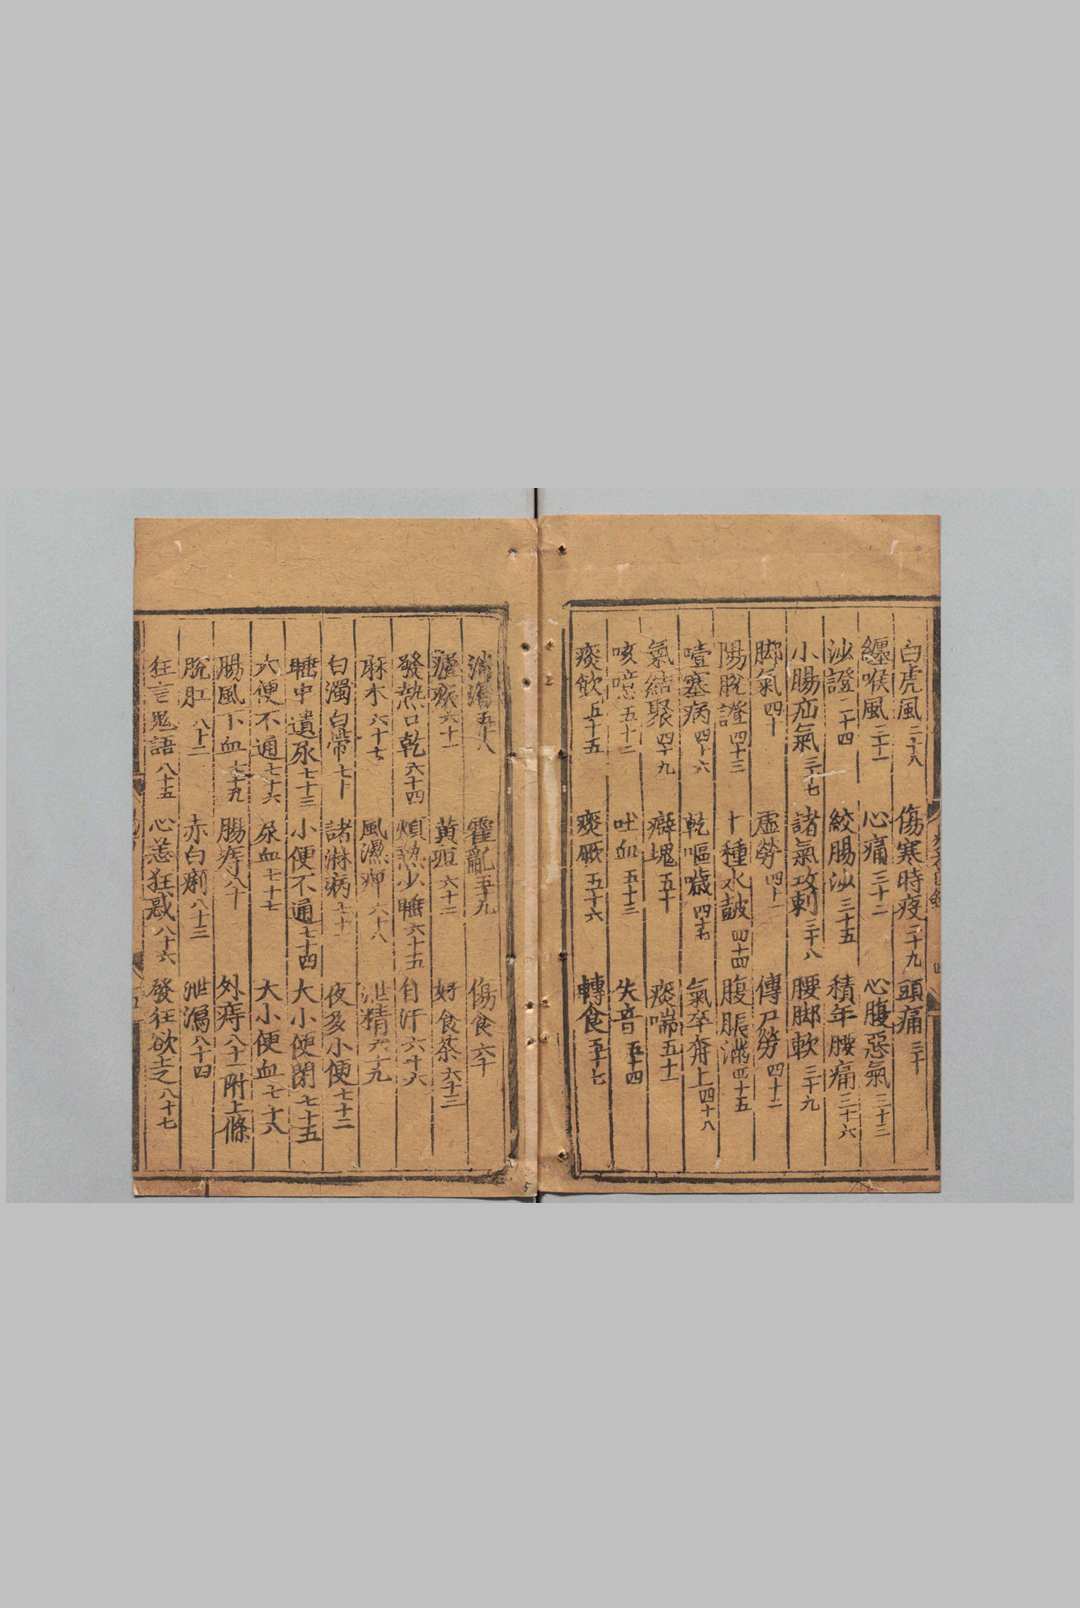 白虎風二十八 傷寒時疫二十九 頭痛三十
纏喉風三十一 心痛三十二 心腹惡氣三十三
沙證三十四 絞腸沙三十五 積年腰痛三十六
小腸疝氣三十七 諸氣攻刺三十八 腰脚軟三十九
脚氣四十 虛勞四十一 傳尸勞四十二
陽脫證四十三 十種水鼓四十四 腹脹滿四十五
噎塞病四十六 乾嘔噦四十七 氣卒奔上四十八
氣結聚四十九 癖塊五十 痰喘五十一
咳噫五十二 吐血五十三 失音五十四
痰飲五十五 痰厥五十六 轉食五十七
消渴五十八 霍亂五十九 傷食六十
六十一 黃疸六十二 好食茶六十三
發熱口乾六十四 煩熱少睡六十五 自汗六十六
麻木六十七 風濕痺六十八 泄精六十九
白濁白帶七十 諸淋病七十一 夜多小便七十二
睡中遺尿七十三 小便不通七十四 大小便閉七十五
大便不通七十六 尿血七十七 大小便血七十八
腸風下血七十九 腸痔八十 外痔八十一附上條
脫肛八十二 赤白痢八十三 泄瀉八十四
狂言鬼語八十五 心恙狂惑八十六 發狂欲走八十七